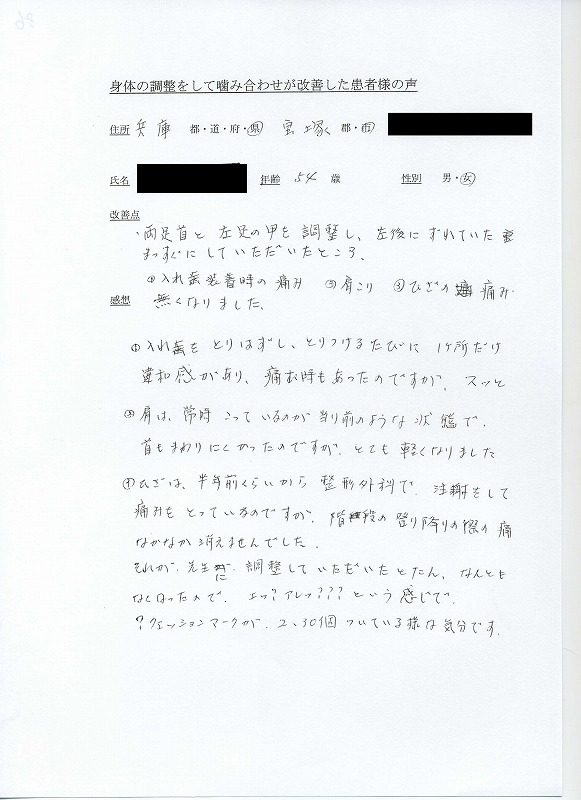 身体の調整をして噛み合わせが改善した患者様の声
住所 兵庫 都・道・府・県 宝塚 郡・市
氏名 年齢 54 歳 性別 男・女
改善点
・両足首と左足の甲を調整し、左後にずれていた
まっすぐにしていただいたところ、
①入れ歯装着時の痛み ②肩こり ③ひざの痛み
感想 無くなりました、
①入れ歯をとりはずし、とりつけるたびに1ヶ所だけ
違和感があり、痛む時もあったのですが、スッと
②肩は、常時こっているのが当り前のような状態で、
首もまわりにくかったのですが、とても軽くなりました
ひざは、半年前くらいから整形外科で、注射をして
痛みをとっているのですが、階段の登り降りの際の痛
なかなか消えませんでした。
それが、先生に調整していただいたとたん、なんとも
なくなったので、エッ?アレッ???という感じで、
?クェッションマークが、2、30個ついている様な気分です。